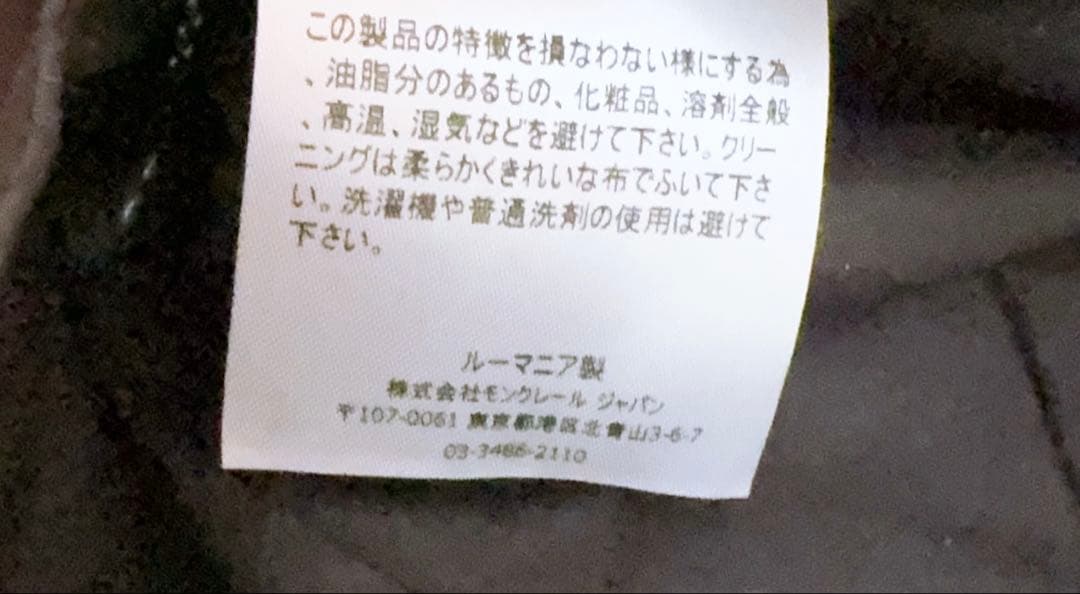 この製品の特徴を損なわない様にする為
、油脂分のあるもの、化粧品、溶剤全般
、高温、湿気などを避けて下さい。クリー
ニングは柔らかくきれいな布でふいて下さ
い。洗濯機や普通洗剤の使用は避けて
下さい。
ルーマニア製
株式会社モンクレール ジャパン
〒107-0061 東京都港区北青山3-6-7
03-3486-2110